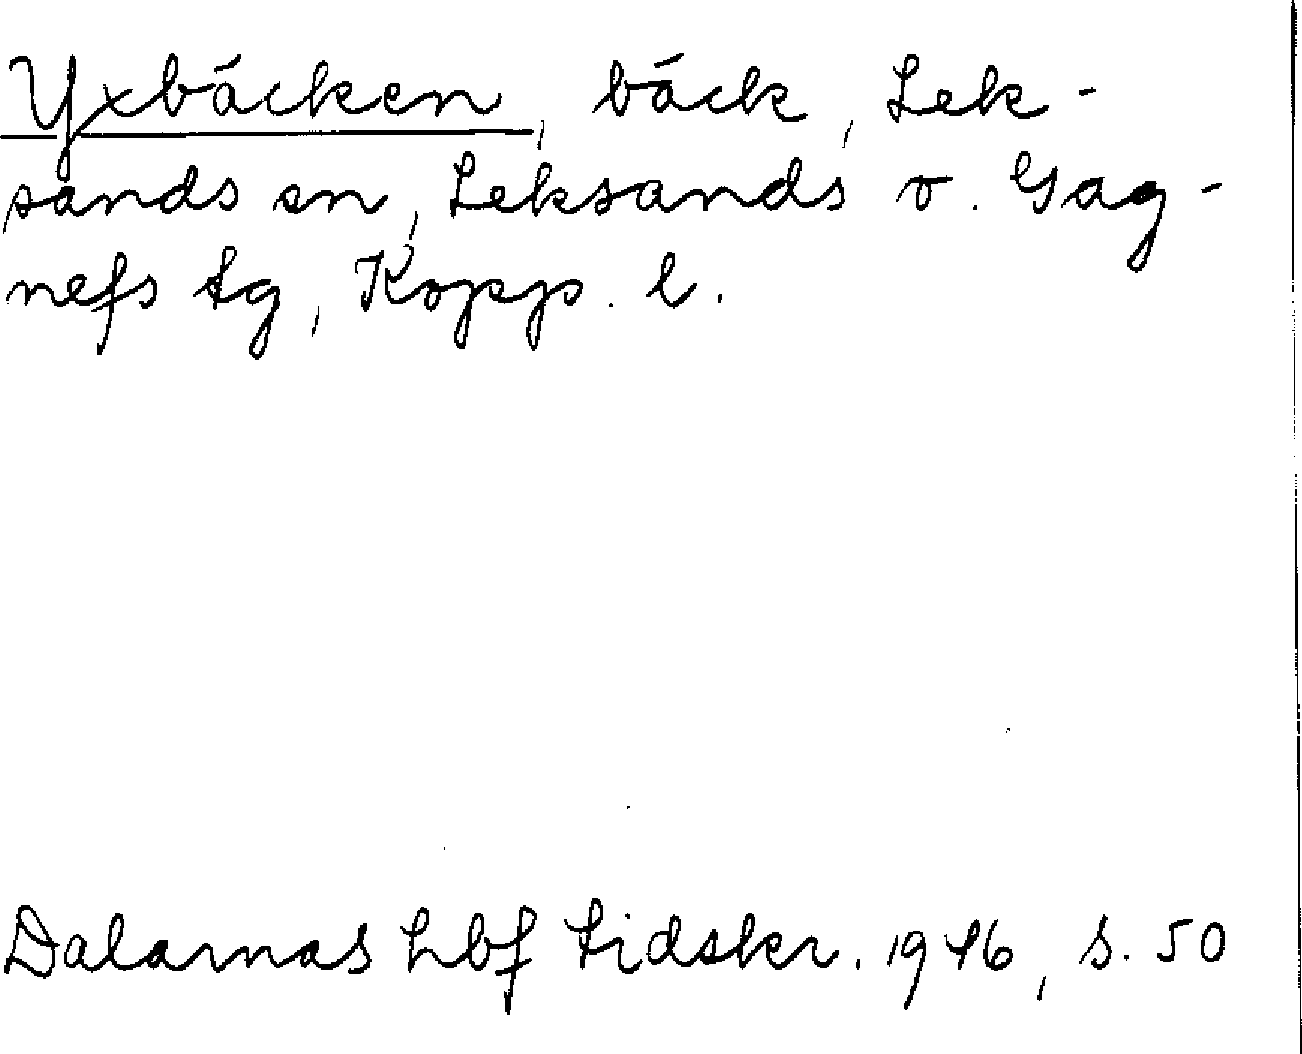 Yxbäcken, bäck, Lek-
sands sn, Leksands o. Gag-
nefs tg, Kopp. l.
Dalarnas hbf tidskr. 1946, s. 50